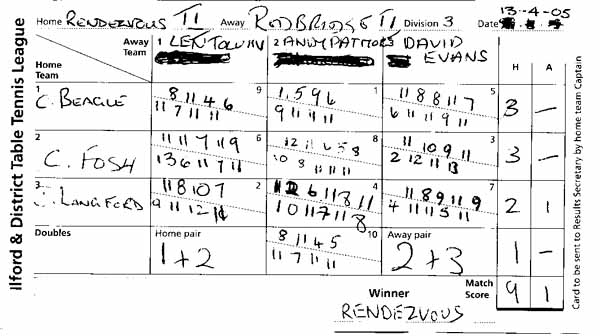 Ilford & District Table Tennis League
Home RENDEZVOUS II Away RODBRIDGE II Division 3 Date 13-4-05
Away Team 1 LEN 2 ANDY DAVID EVANS H A
Home Team
1 C. BEAGLE 9 1 5 3 —
8 11 4 6 1 5 9 6 11 8 8 11 7
11 7 11 11 9 11 11 11 6 11 11 9 11
2 C. FOSH 6 8 3 3 —
11 11 7 11 9 12 11 6 5 8 11 10 9 11
13 6 11 7 11 10 8 11 11 11 2 12 11 13
3 LANGFORD 2 4 7 2 1
11 8 10 7 6 11 8 11 11 8 9 11 9
9 11 12 11 10 11 7 11 8 4 11 11 5 11
Doubles Home pair 10 Away pair
1+2 8 11 4 5 2+3 1 —
11 7 11 11
Winner Match Score 9 1
RENDEZVOUS
Card to be sent to Results Secretary by home team Captain